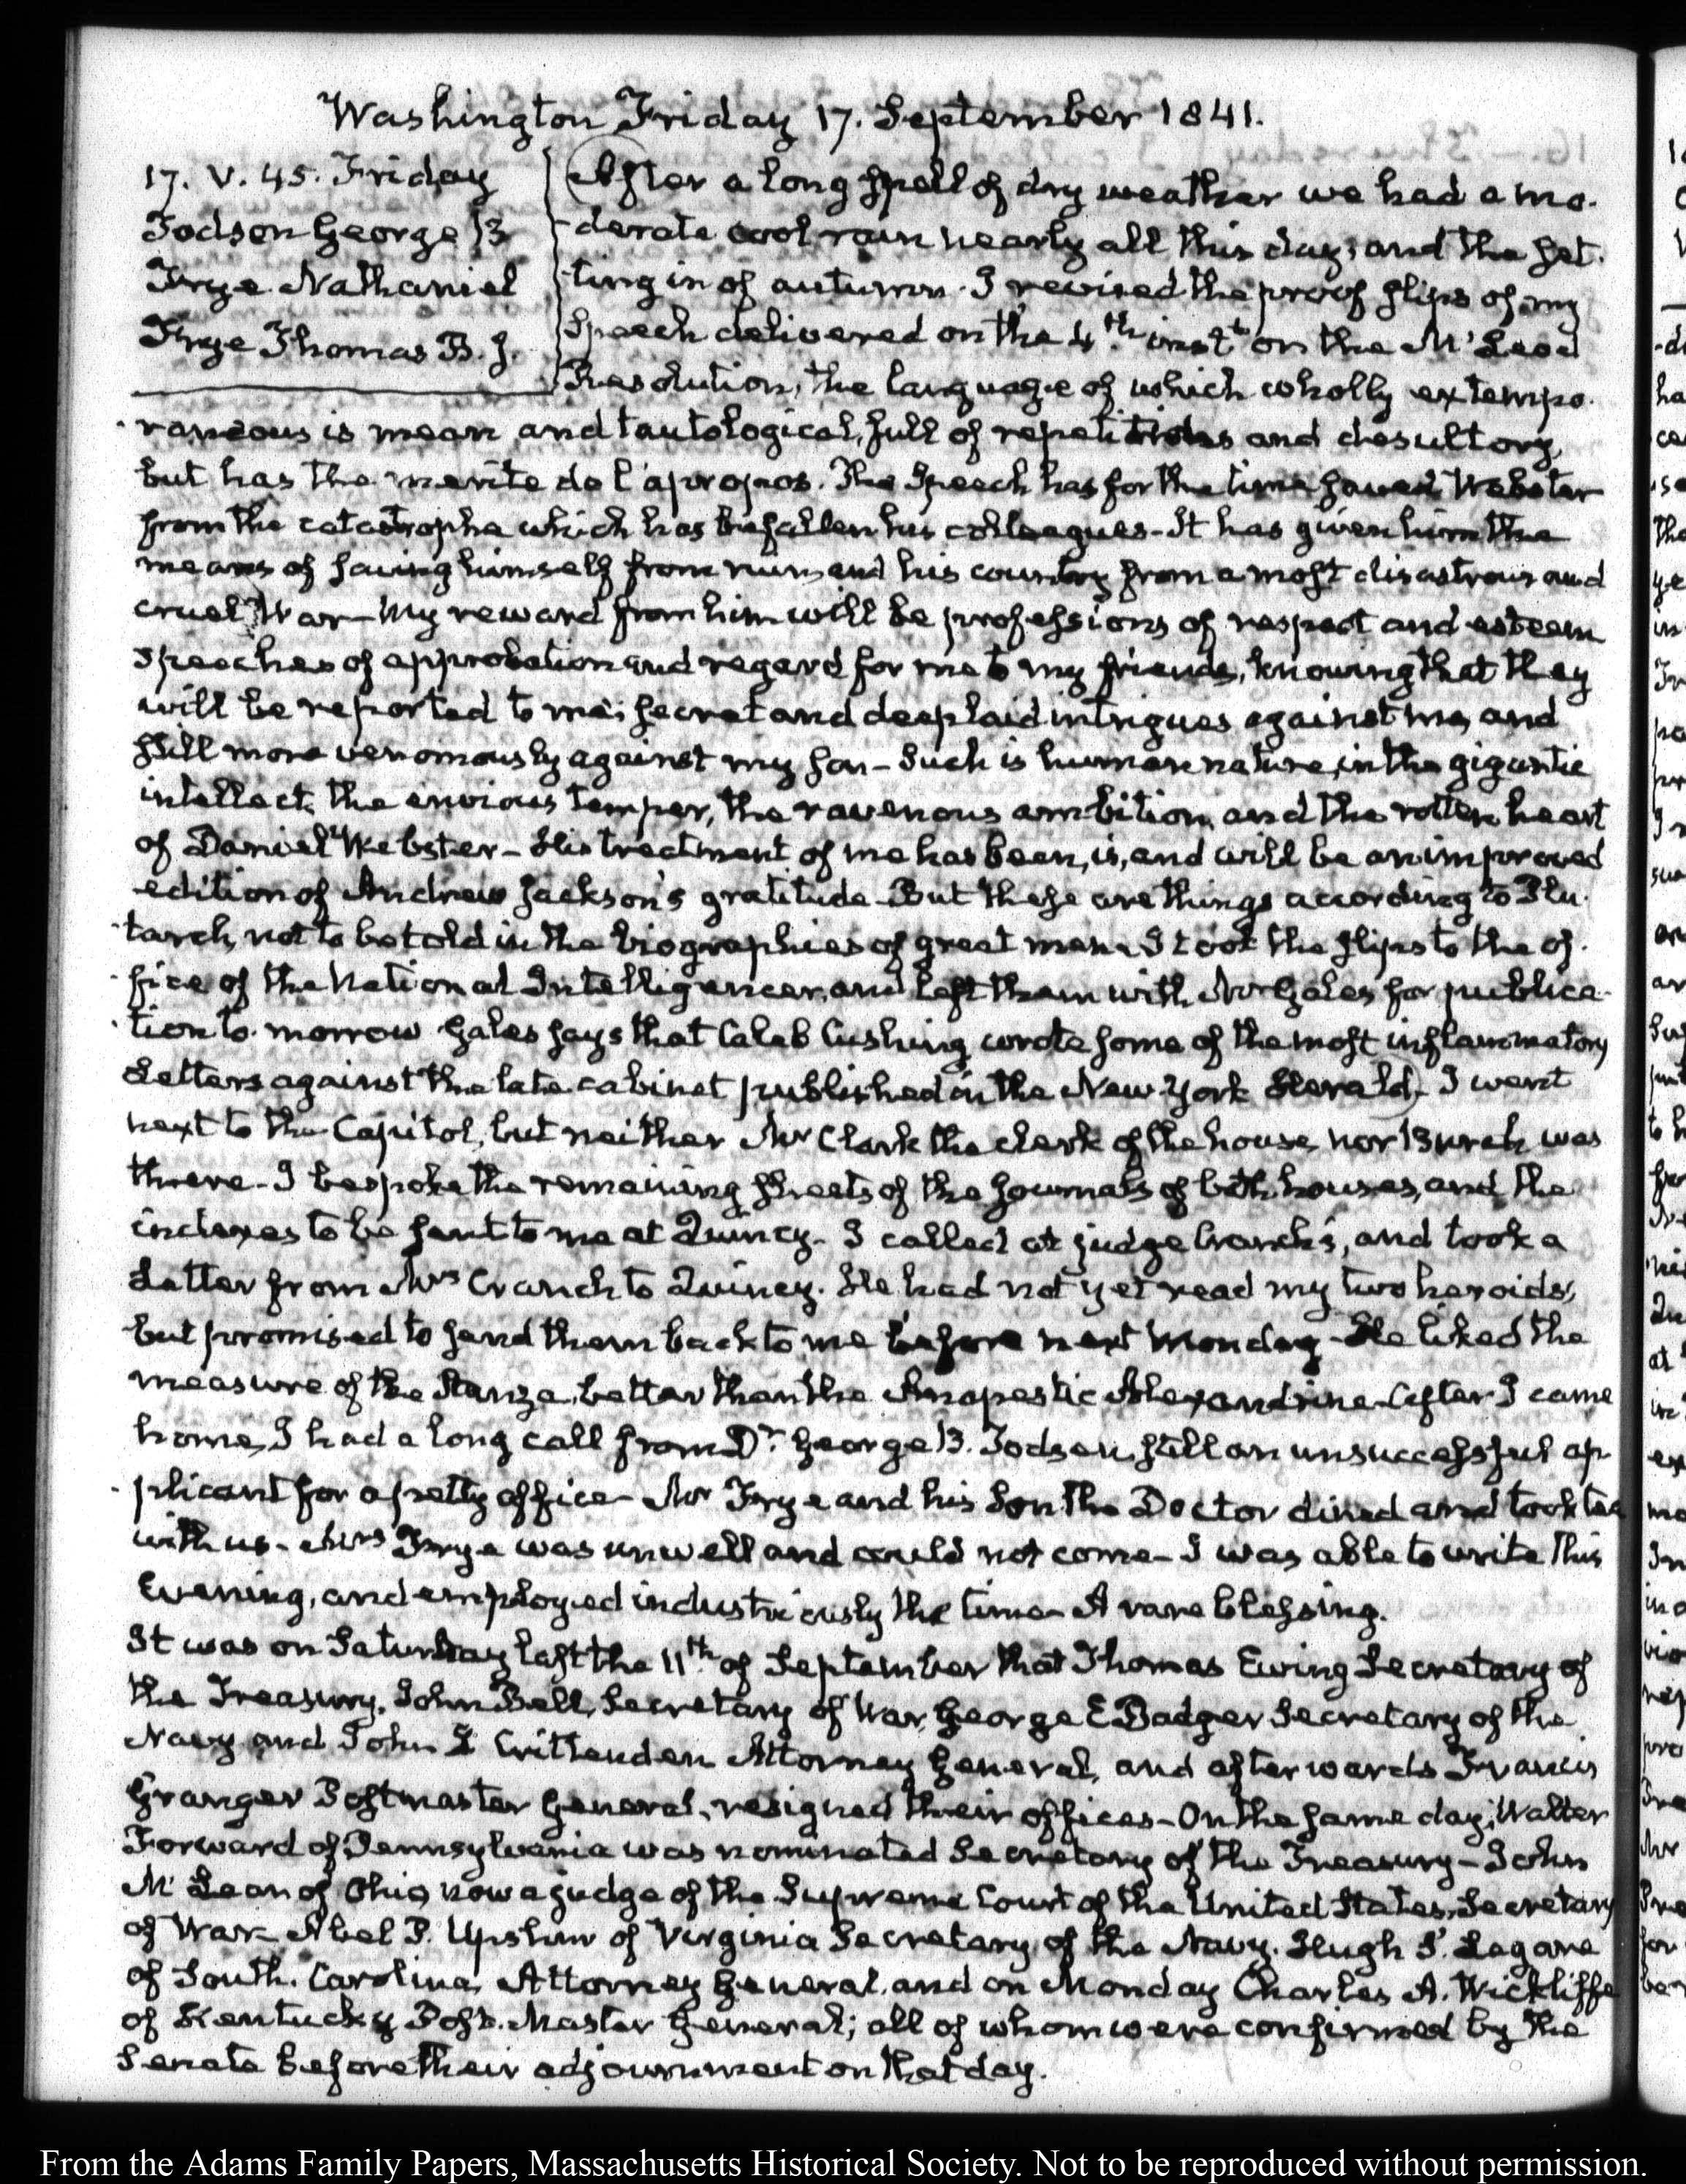 Washington Friday 17. September 1841.
17. V. 45. Friday
Todsen George B
Frye Nathaniel
Frye Thomas B. J.
After a long spell of dry weather we had a mo-
derate cool rain nearly all this day, and the set-
ting in of autumn. I revised the proof slips of my
Speech delivered on the 4th. inst.t on the McLeod
Resolution, the language of which wholly extempo-
raneous is mean and tautological, full of repetitions and desultory,
but has the merite de l'apropos. The Speech has for the time saved Webster
from the catastrophe which has befallen his colleagues - It has given him the
means of saving himself from ruin, and his country from a most disastrous and
cruel War - My reward from him will be professions of respect and esteem
speeches of approbation and regard for me to my friends, knowing that they
will be reported to me; secret and deep laid intrigues against me, and
still more venomously against my son - Such is human nature, in the gigantic
intellect, the envious temper, the ravenous ambition, and the rotten heart
of Daniel Webster - His treatment of me has been, is, and will be an improved
edition of Andrew Jackson's gratitude. But these are things according to Plu-
tarch, not to be told in the biographies of great men. I took the slips to the of-
fice of the National Intelligencer, and left them with Mr Gales for publica-
tion to-morrow. Gales says that Caleb Cushing wrote some of the most inflammatory
Letters against the late cabinet published in the New-York Herald - I went
next to the Capitol, but neither Mr Clark the clerk of the house, nor Burch was
there - I bespoke the remaining sheets of the Journals of both houses, and the
indexes to be sent to me at Quincy - I called at judge Cranch's, and took a
Letter from Mrs Cranch to Quincy. He had not yet read my two heroids,
but promised to send them back to me before next Monday - He liked the
measure of the Stanza, better than the Anapestic Alexandrine - After I came
home, I had a long call from Dr. George B. Todsen, still an unsuccessful ap-
plicant for a petty office - Mr Frye and his Son the Doctor dined and took tea
with us - Mrs Frye was unwell and could not come - I was able to write this
Evening, and employed industriously the time - A rare blessing.
It was on Saturday last the 11th. of September that Thomas Ewing Secretary of
the Treasury, John Bell, Secretary of War, George E Badger Secretary of the
Navy and John J Crittenden Attorney General, and afterwards Francis
Granger Postmaster General, resigned their offices - On the same day, Walter
Forward of Pennsylvania was nominated Secretary of the Treasury - John
McLean of Ohio, now a judge of the Supreme Court of the United States, Secretary
of War - Abel P. Upshur of Virginia Secretary of the Navy. Hugh S. Legare
of South-Carolina, Attorney General, and on Monday Charles A. Wickliffe
of Kentucky Post-Master General; all of whom were confirmed by the
Senate before their adjournment on that day.
From the Adams Family Papers, Massachusetts Historical Society. Not to be reproduced without permission.